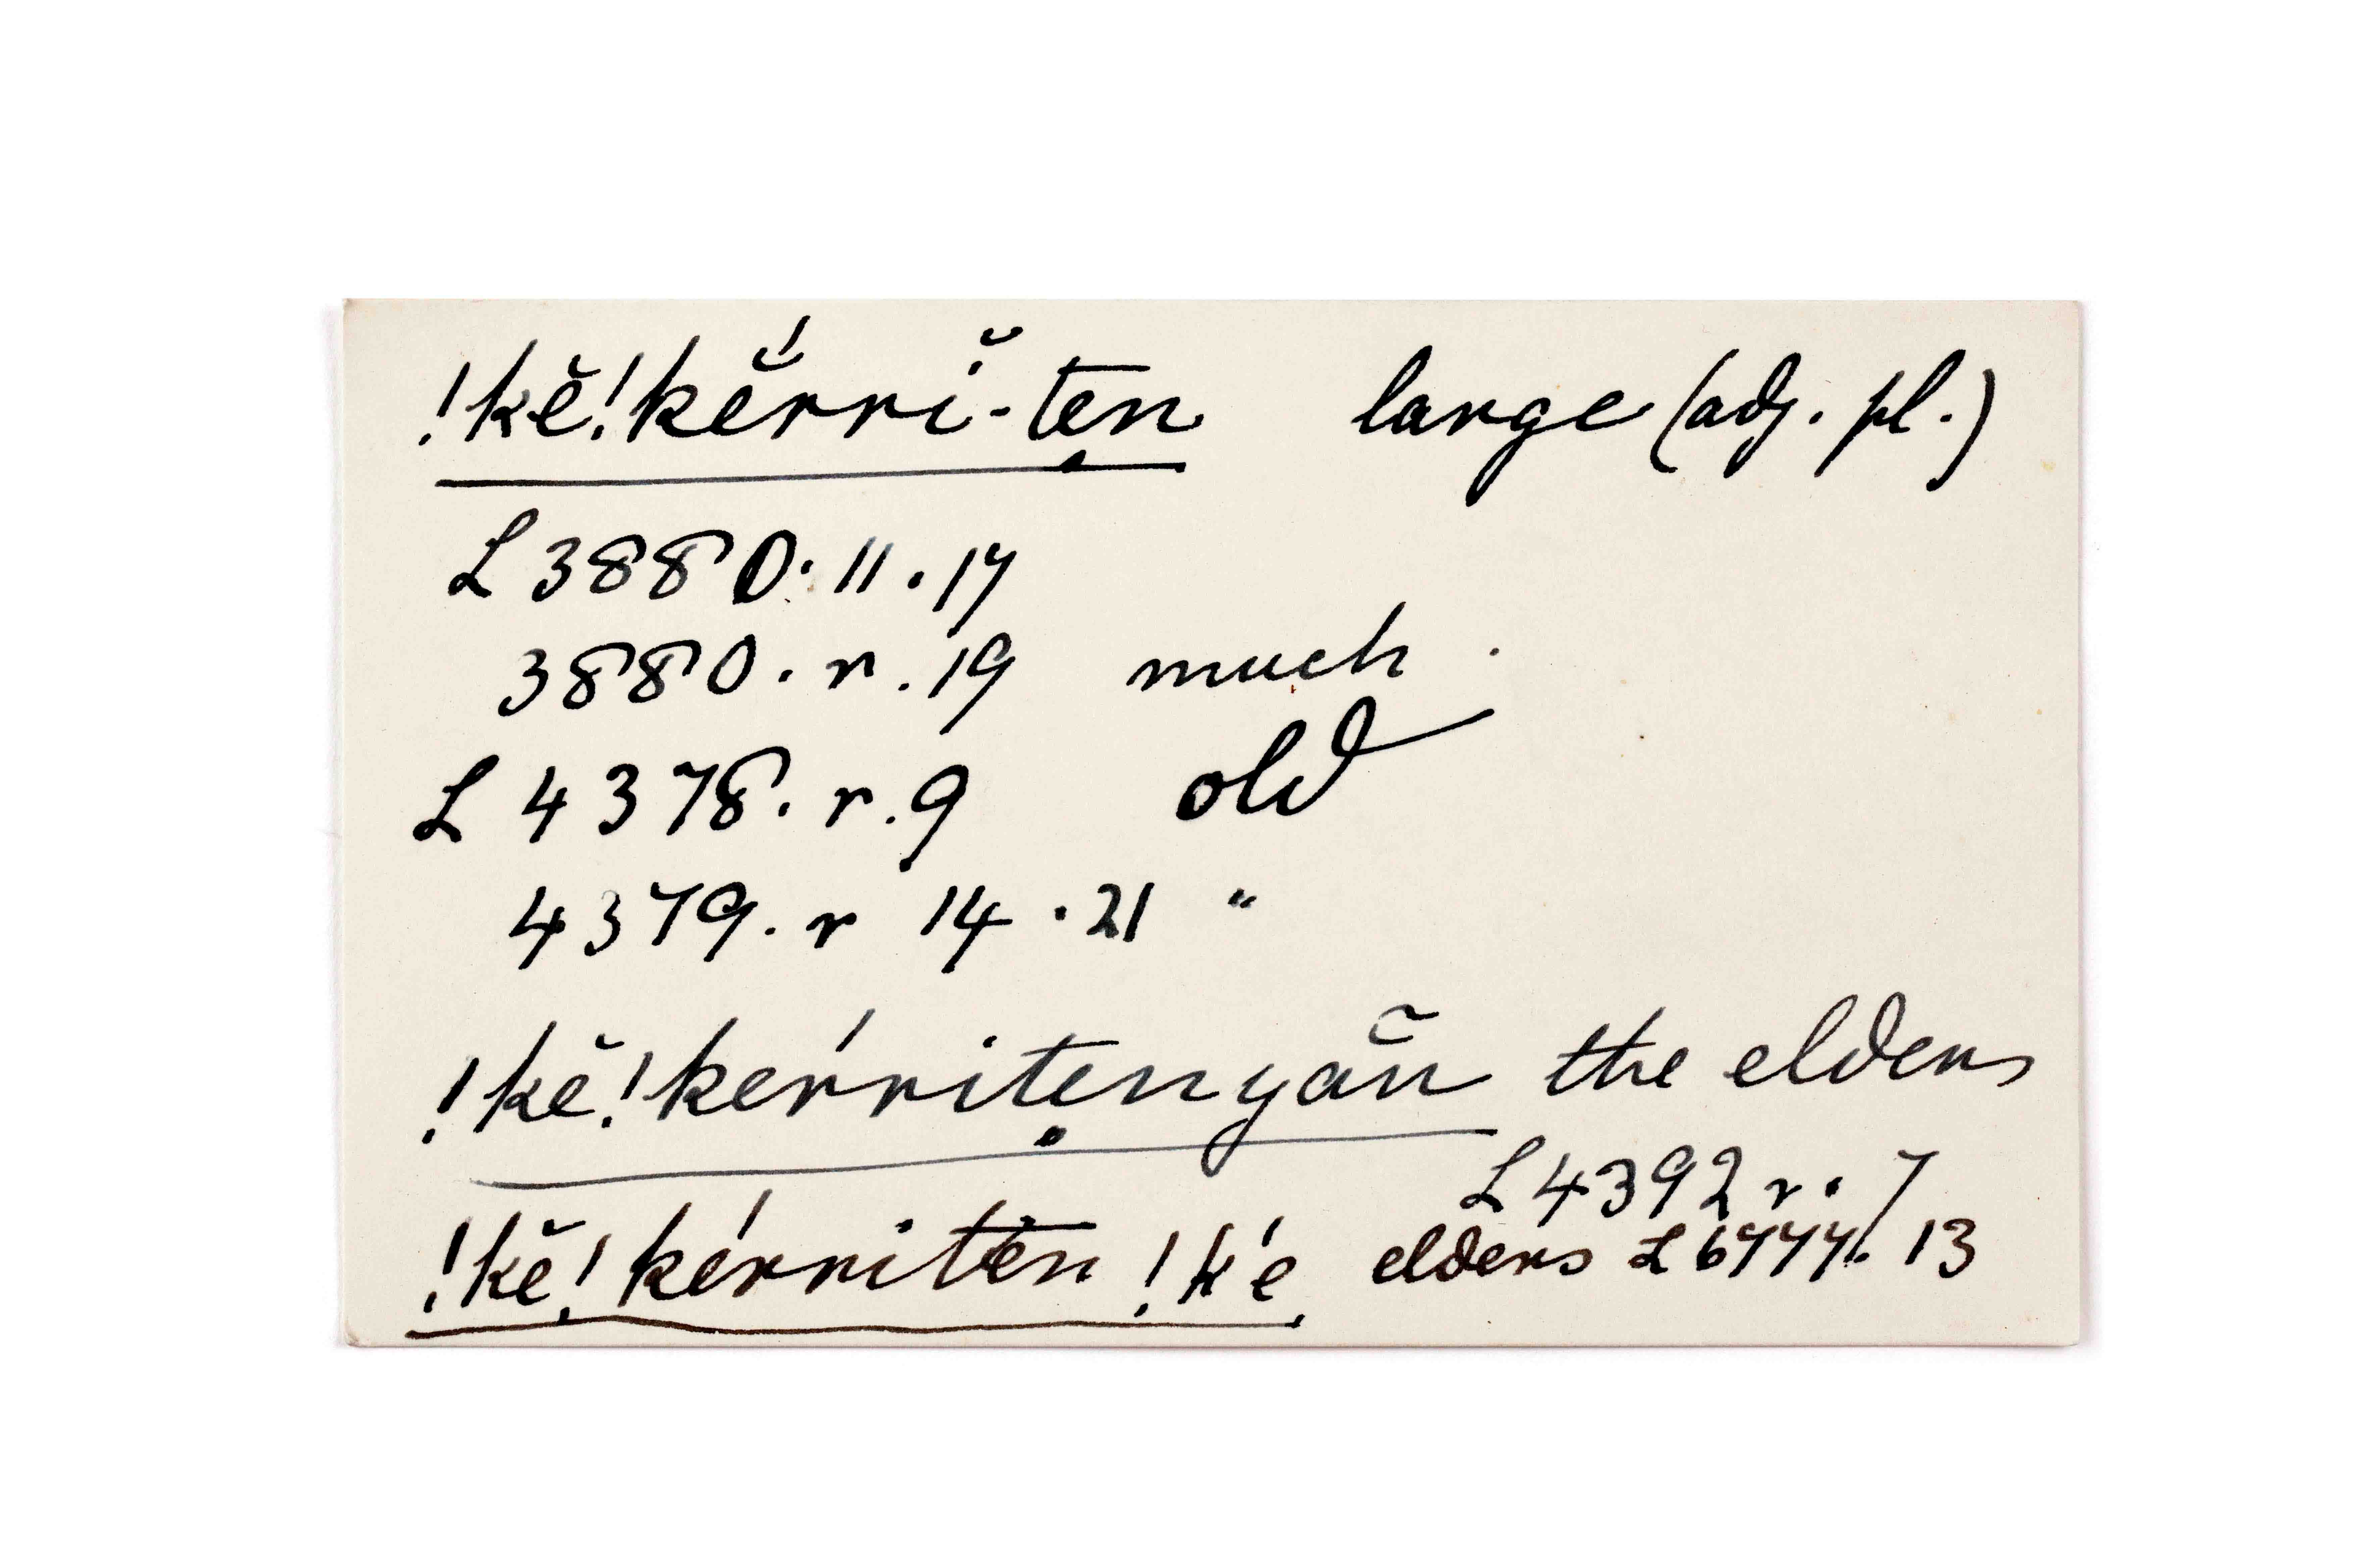 !kĕ!kĕ́rrĭ-ten̥ large (adj. pl.)
L 3880. 11. 17
3880. r. 19 much.
L 4378. r. 9 old
4379. r 14. 21 "
!kĕ!kérritenyãn̄ the elders
L 4392 r. 7
!kĕ!kérriten !k'é elders L 6777. 13